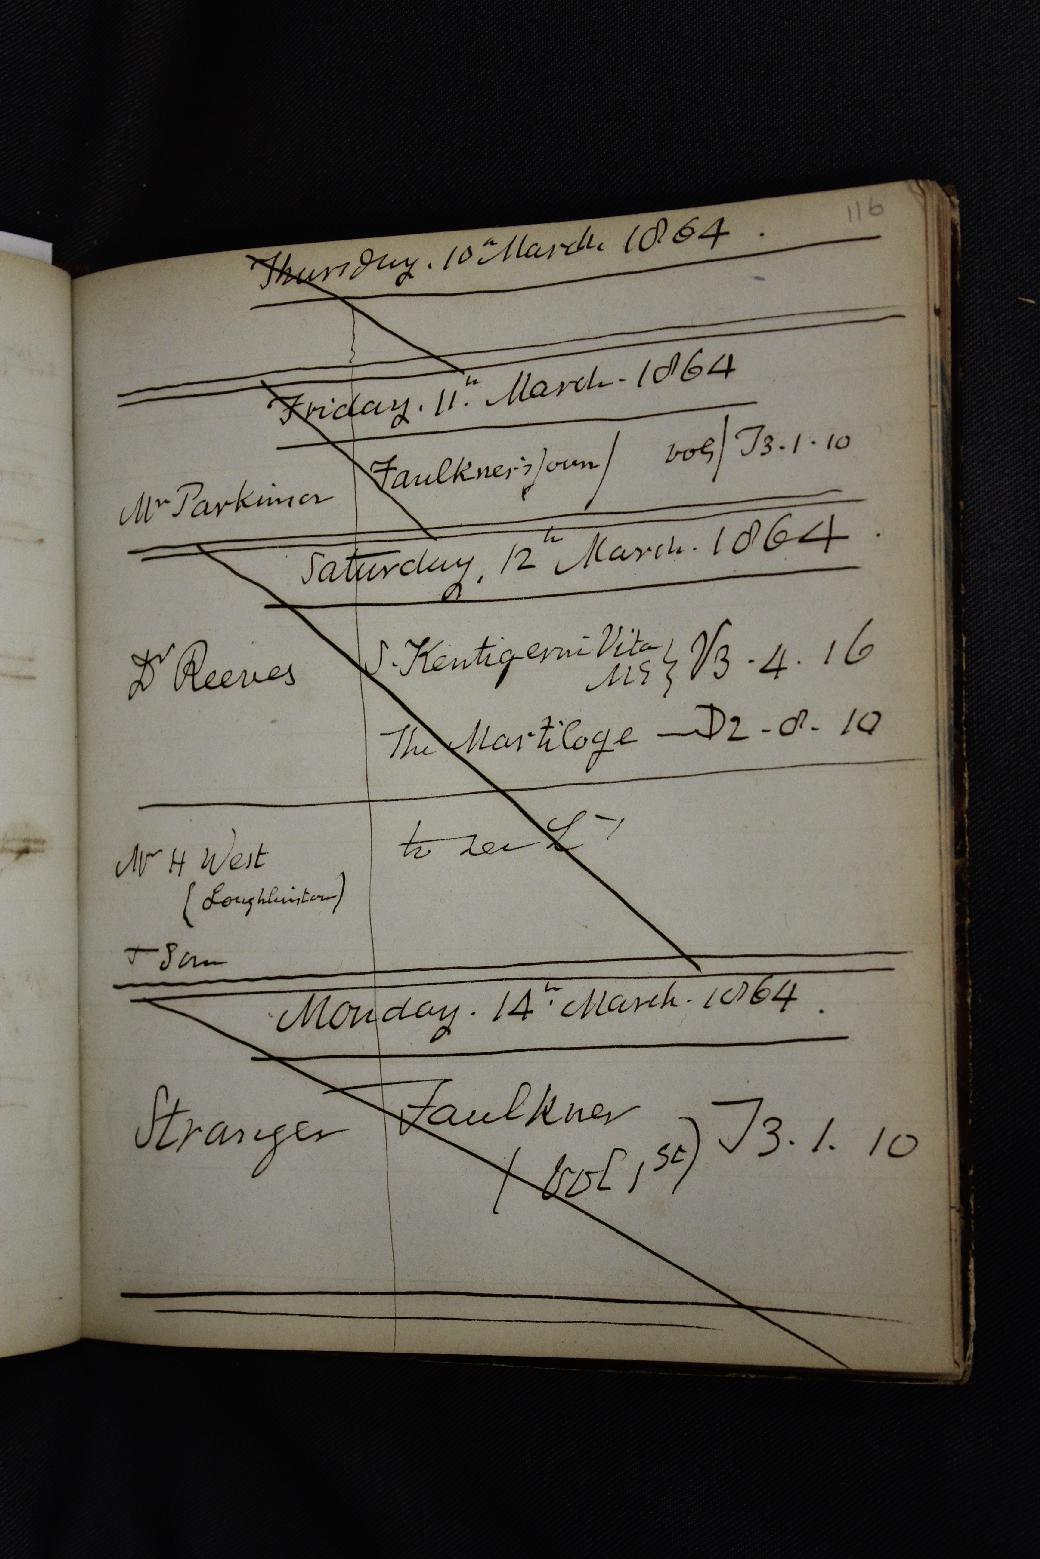 116
Thursday. 10th March. 1864.
Friday. 11th. March. 1864
Mr Parkinson Faulkner's Journ/ vols/ J3.1.10
Saturday. 12th March. 1864.
Dr Reeves S. Kentigerni Vita MS V3.4.16
The Martiloge — D2-8-10
Mr H West to see Ly
(Loughlinstown)
+ Son
Monday. 14th March. 1864.
Stranger Faulkner J3.1.10
(vol 1st)